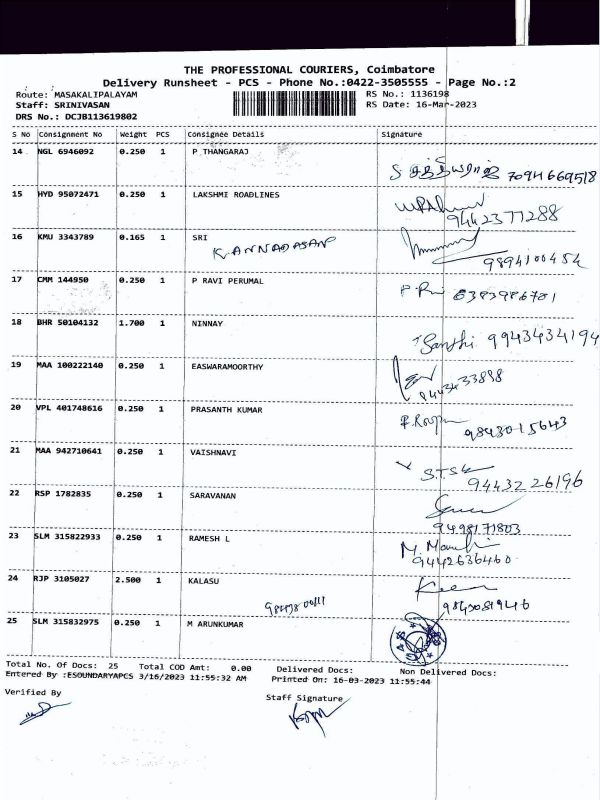 THE PROFESSIONAL COURIERS, Coimbatore
Delivery Runsheet - PCS - Phone No.:0422-3505555 - Page No.:2
Route: MASAKALIPALAYAM RS No.: 1136198
Staff: SRINIVASAN RS Date: 16-Mar-2023
DRS No.: DCJB113619802
S No Consignment No Weight PCS Consignee Details Signature
14 NGL 6946092 0.250 1 P THANGARAJ
7094669518
15 HYD 95072471 0.250 1 LAKSHMI ROADLINES
9442377288
16 KMU 3343789 0.165 1 SRI
KANNADASAN
9894100454
17 CMM 144950 0.250 1 P RAVI PERUMAL
6383986701
18 BHR 50104132 1.700 1 NINNAY
Santhi 9943434194
19 MAA 100222140 0.250 1 EASWARAMOORTHY
9443433898
20 VPL 401748616 0.250 1 PRASANTH KUMAR
9843015643
21 MAA 942710641 0.250 1 VAISHNAVI
9443226196
22 RSP 1782835 0.250 1 SARAVANAN
9498171803
23 SLM 315822933 0.250 1 RAMESH L
9442636460
24 RJP 3105027 2.500 1 KALASU
9843081946
25 SLM 315832975 0.250 1 M ARUNKUMAR
Total No. Of Docs: 25 Total COD Amt: 0.00 Delivered Docs: Non Delivered Docs:
Entered By :ESOUNDARYAPCS 3/16/2023 11:55:32 AM Printed On: 16-03-2023 11:55:44
Verified By Staff Signature